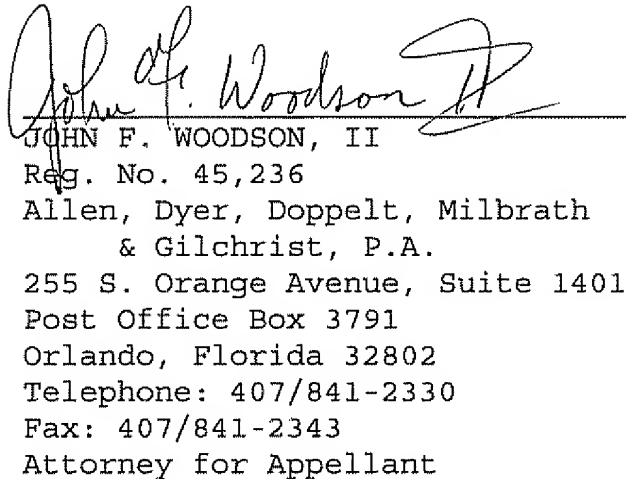 John F. Woodson II
JOHN F. WOODSON, II
Reg. No. 45,236
Allen, Dyer, Doppelt, Milbrath
& Gilchrist, P.A.
255 S. Orange Avenue, Suite 1401
Post Office Box 3791
Orlando, Florida 32802
Telephone: 407/841-2330
Fax: 407/841-2343
Attorney for Appellant